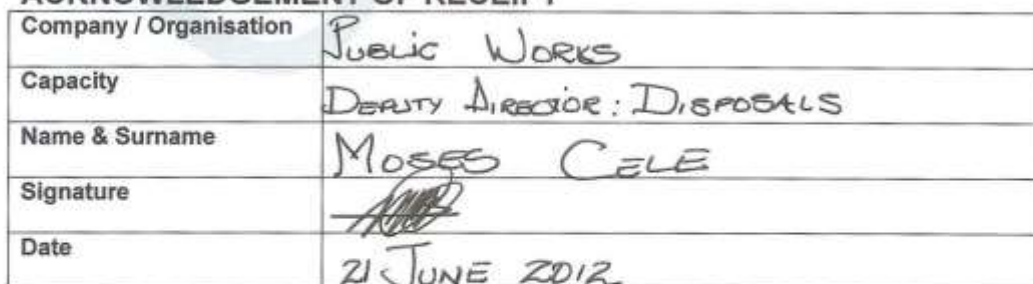 ACKNOWLEDGEMENT OF RECEIPT
Company / Organisation PUBLIC WORKS
Capacity DEPUTY DIRECTOR: DISPOSALS
Name & Surname MOSES CELE
Signature
Date 21 JUNE 2012